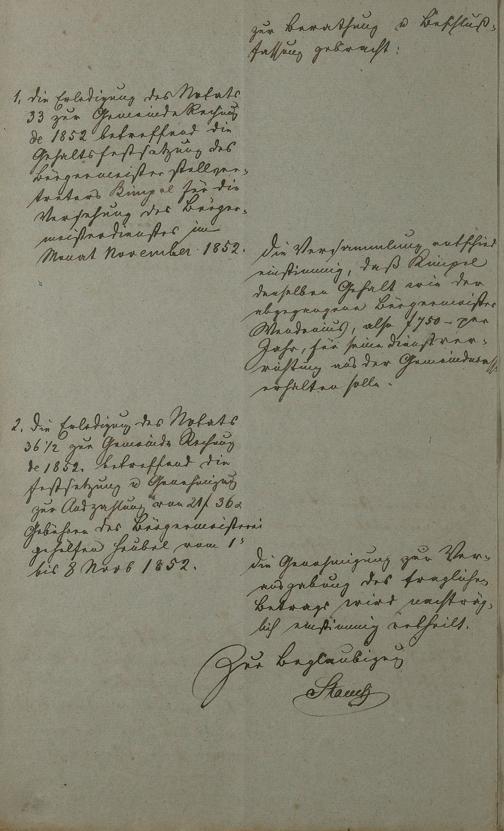 zur Berathung u Beschluß-
fassung gebracht:
1, Die Erledigung des Notats
33 zur Gemeinde Rechnung
de 1852 betreffend die
Gehaltsfestsetzung des
Bürgermeisterstellver-
treters Kimpel für die
Versehung des Bürger-
meisterdienstes im
Monat November 1852.
Die Versammlung entschied
einstimmig, daß Kimpel
denselben Gehalt wie der
abgegangene Bürgermeister
also f 750 – per
Jahr, für seine Dienstver-
richtung aus der Gemeindecasse
erhalten solle.
2, Die Erledigung des Notats
36 1/2 zur Gemeinde Rechnung
de 1852. betreffend die
Festsetzung u Genehmigung
zur Auszahlung von 21 f. 36 x
Gebühren des Bürgermeisterei
gehülfen Heubel vom 1
bis 8 Novb 1852.
Die Genehmigung zur Ver-
ausgabung des fraglichen
Betrags wird nachträg-
lich einstimmig ertheilt.
Zur Beglaubigung